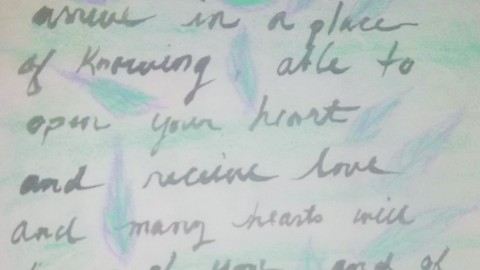 arrive in a place
of Knowing, able to
open your heart
and receive love
and many hearts will
of you and of